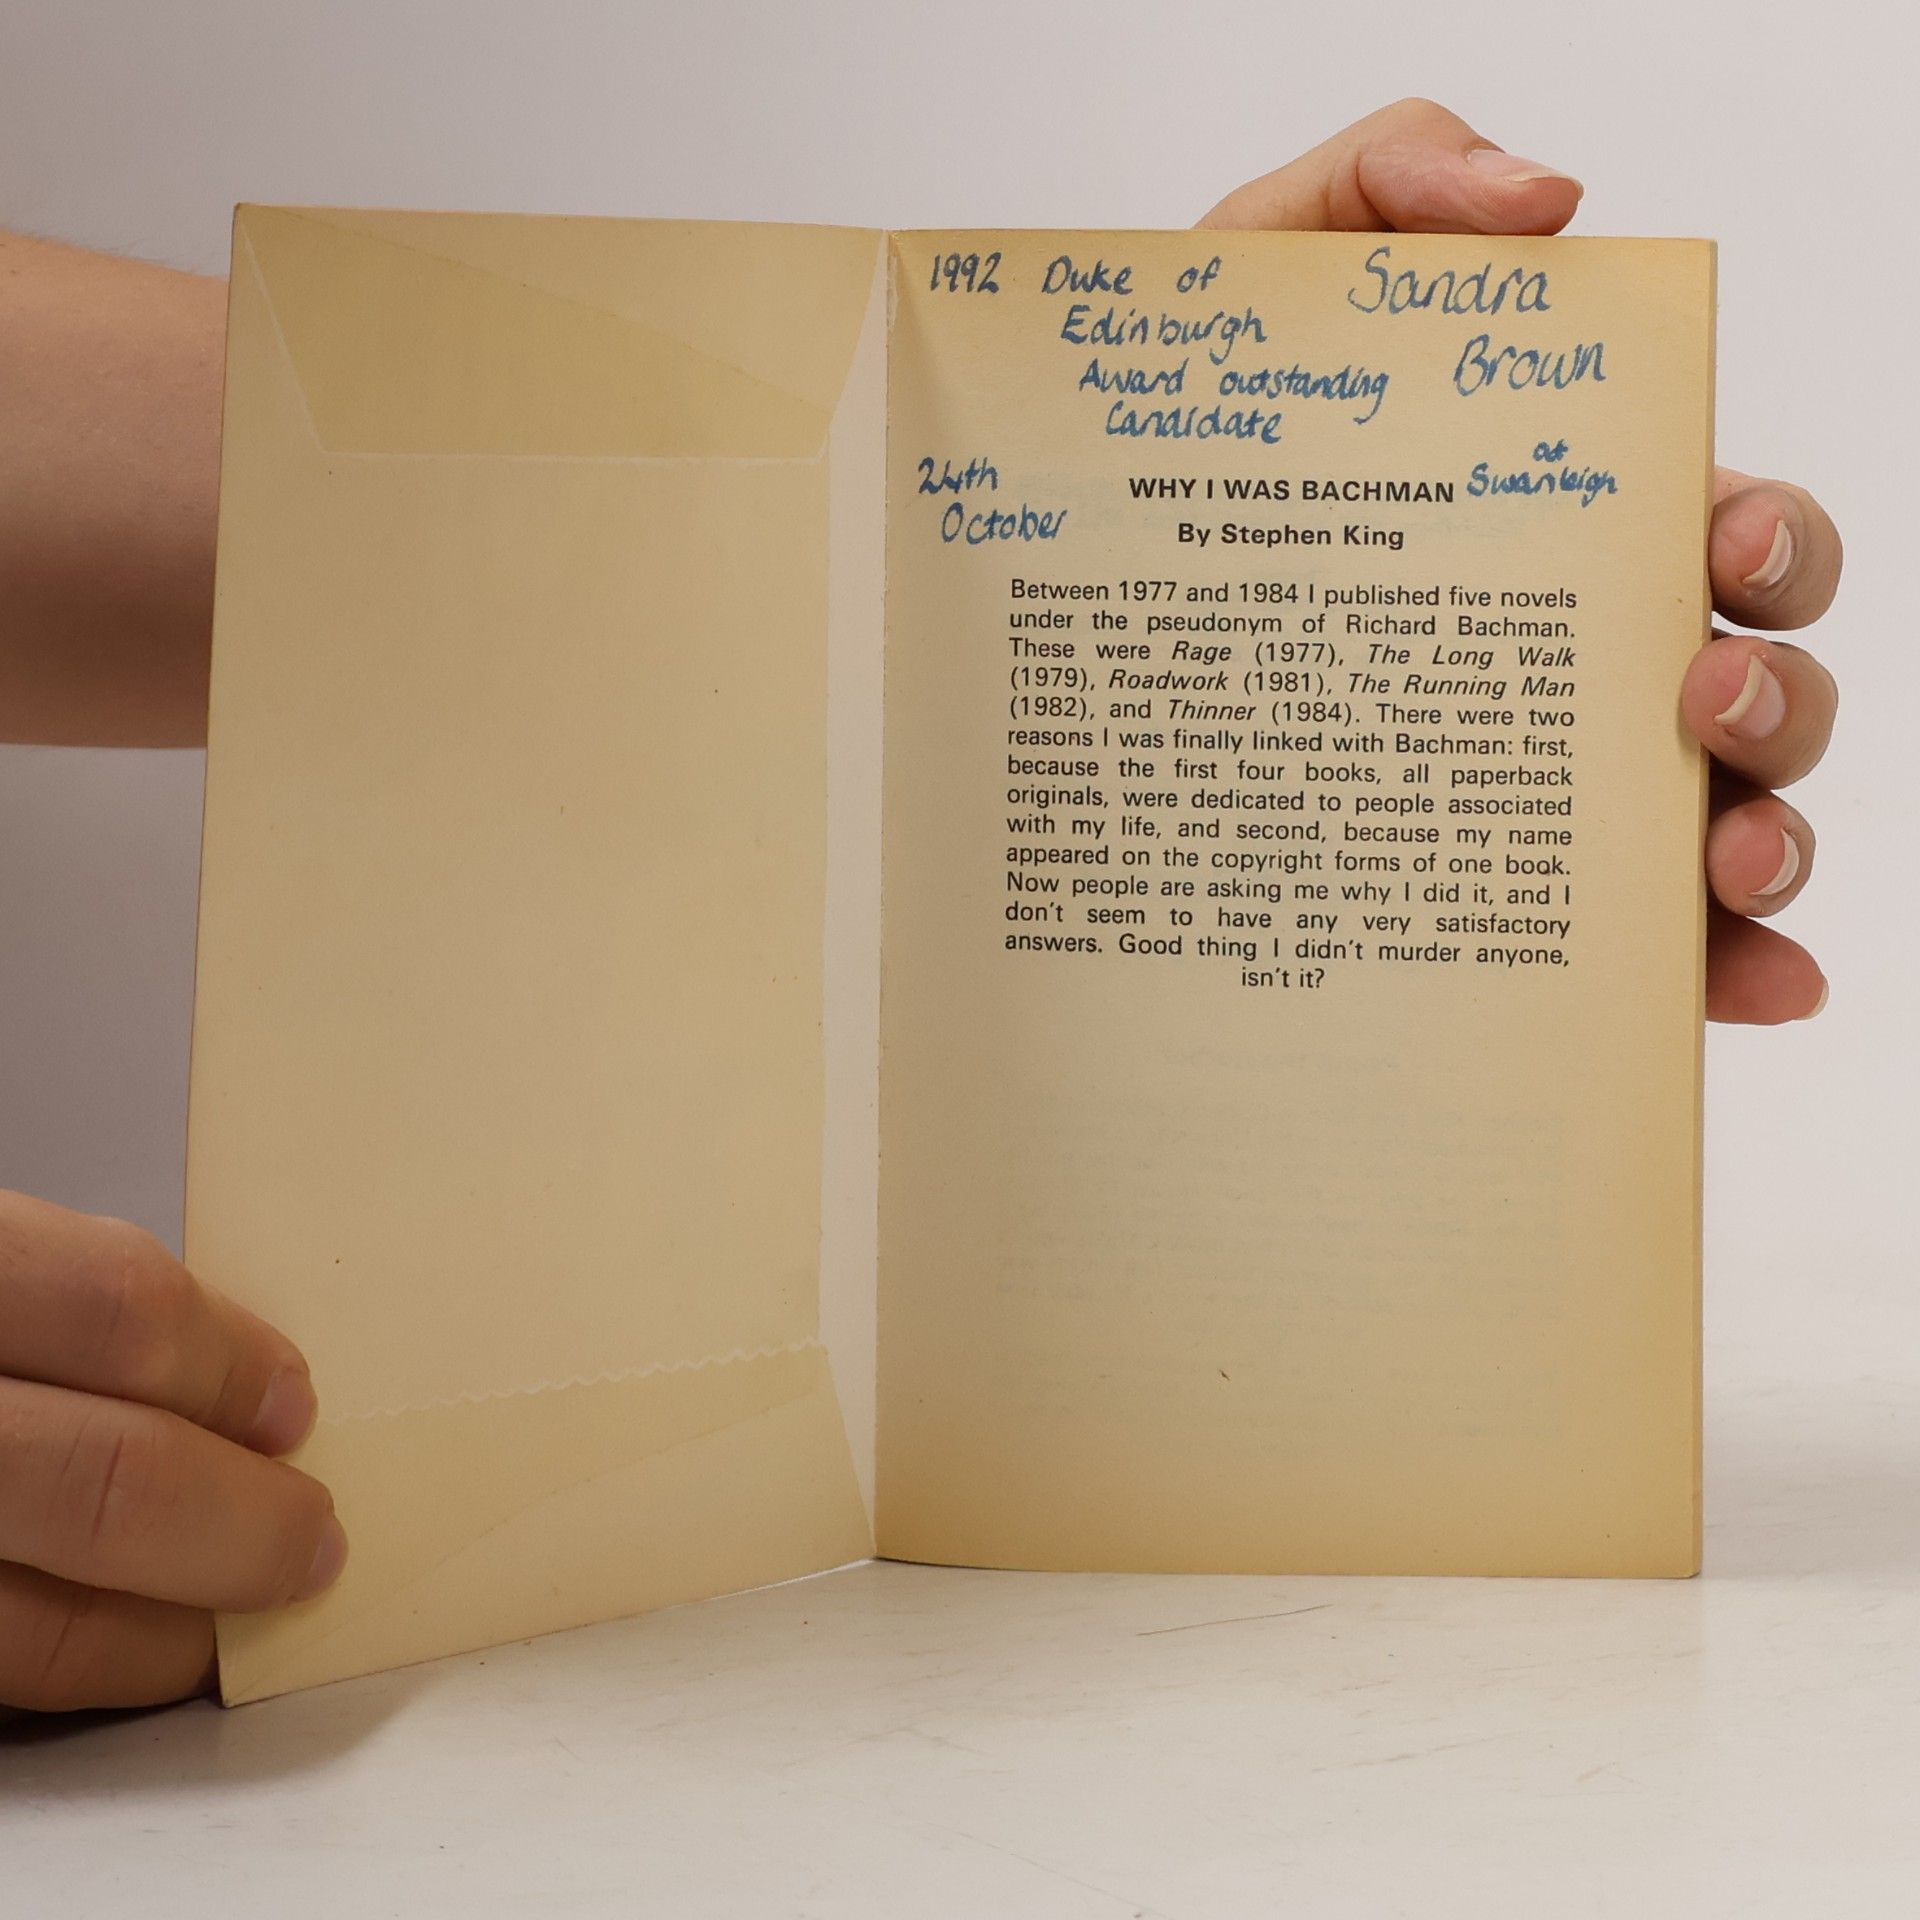 1992 Duke of
Edinburgh
Award outstanding
Candidate
Sandra
Brown
at
Swanleigh
24th
October
WHY I WAS BACHMAN
By Stephen King
Between 1977 and 1984 I published five novels
under the pseudonym of Richard Bachman.
These were Rage (1977), The Long Walk
(1979), Roadwork (1981), The Running Man
(1982), and Thinner (1984). There were two
reasons I was finally linked with Bachman: first,
because the first four books, all paperback
originals, were dedicated to people associated
with my life, and second, because my name
appeared on the copyright forms of one book.
Now people are asking me why I did it, and I
don't seem to have any very satisfactory
answers. Good thing I didn't murder anyone,
isn't it?